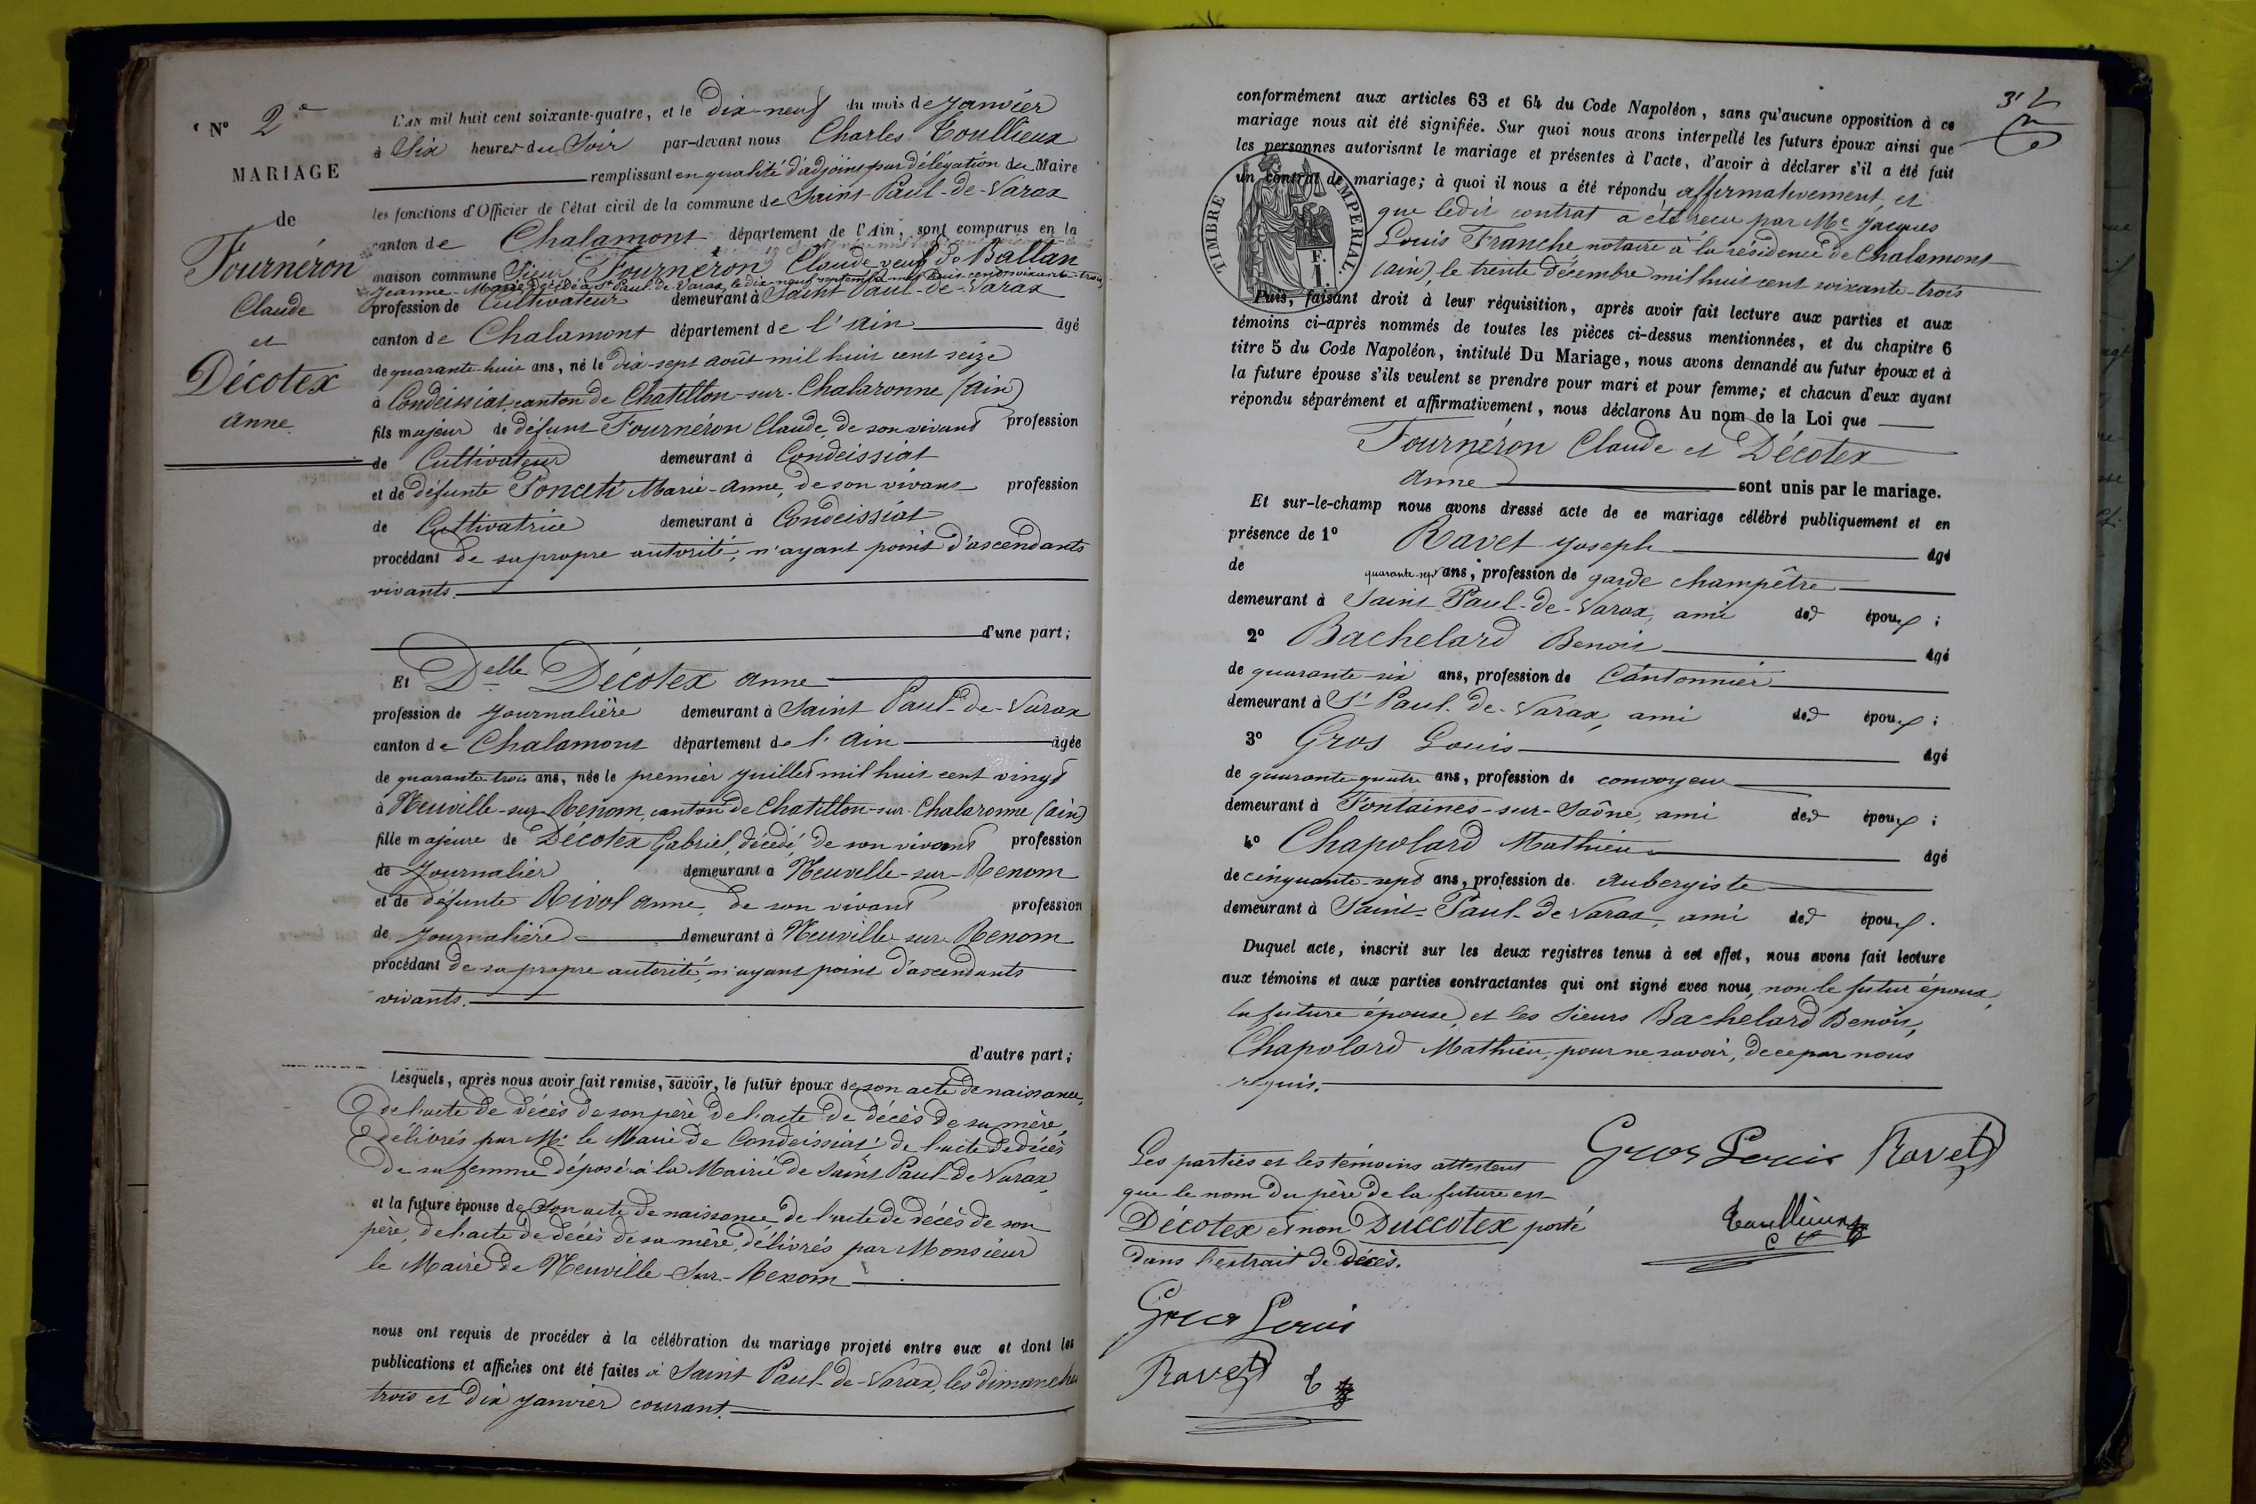 N° 2e
MARIAGE
de
Fournéron
Claude
et
Décotex
Anne
L'AN mil huit cent soixante-quatre, et le dix-neuf du mois de Janvier
à Six heures du Soir par-devant nous Charles Toullieux
remplissant en qualité d'adjoint par délégation du Maire
les fonctions d'Officier de l'état civil de la commune de Saint Paul-de-Varax
canton de Chalamont département de l'Ain, sont comparus en la
maison commune Sieur Fournéron Claude veuf de Ballan
Jeanne-Marie décédée à St Paul-de-Varax, le dix-neuf septembre mil huit cent soixante-trois
profession de Cultivateur demeurant à Saint Paul-de-Varax
canton de Chalamont département de l'Ain âgé
de quarante-huit ans, né le dix-sept août mil huit cent seize
à Condeissiat, canton de Chatillon-sur-Chalaronne (Ain)
fils majeur de défunt Fournéron Claude, de son vivant profession
de Cultivateur demeurant à Condeissiat
et de défunte Poncet Marie-Anne, de son vivant profession
de Cultivatrice demeurant à Condeissiat
procédant de sa propre autorité, n'ayant point d'ascendants
vivants.
d'une part;
Et Delle Décotex Anne
profession de Journalière demeurant à Saint Paul-de-Varax
canton de Chalamont département de l'Ain âgée
de quarante-trois ans, née le premier Juillet mil huit cent vingt
à Neuville-sur-Renom, canton de Chatillon-sur-Chalaronne (Ain)
fille majeure de Décotex Gabriel, décédé, de son vivant profession
de Journalier demeurant à Neuville-sur-Renom
et de défunte Rivol Anne, de son vivant profession
de Journalière demeurant à Neuville-sur-Renom
procédant de sa propre autorité, n'ayant point d'ascendants
vivants.
d'autre part;
Lesquels, après nous avoir fait remise, savoir, le futur époux de son acte de naissance,
de l'acte de décès de son père de l'acte de décès de sa mère,
délivrés par Mr le Maire de Condeissiat; de l'acte de décès
de sa femme déposé à la Mairie de Saint Paul-de-Varax,
et la future épouse de son acte de naissance, de l'acte de décès de son
père, de l'acte de décès de sa mère, délivrés par Monsieur
le Maire de Neuville-Sur-Renom
nous ont requis de procéder à la célébration du mariage projeté entre eux et dont les
publications et affiches ont été faites à Saint Paul-de-Varax, les dimanches
trois et dix Janvier courant.
conformément aux articles 63 et 64 du Code Napoléon, sans qu'aucune opposition à ce
mariage nous ait été signifiée. Sur quoi nous avons interpellé les futurs époux ainsi que
les personnes autorisant le mariage et présentes à l'acte, d'avoir à déclarer s'il a été fait
un contrat de mariage; à quoi il nous a été répondu affirmativement et
que ledit contrat a été reçu par Me Jacques
Louis Franche notaire à la résidence de Chalamont
(Ain), le trente décembre mil huit cent soixante-trois
TIMBRE IMPERIAL.
1 F.
Puis, faisant droit à leur réquisition, après avoir fait lecture aux parties et aux
témoins ci-après nommés de toutes les pièces ci-dessus mentionnées, et du chapitre 6
titre 5 du Code Napoléon, intitulé Du Mariage, nous avons demandé au futur époux et à
la future épouse s'ils veulent se prendre pour mari et pour femme; et chacun d'eux ayant
répondu séparément et affirmativement, nous déclarons Au nom de la Loi que
Fournéron Claude et Décotex
Anne sont unis par le mariage.
Et sur-le-champ nous avons dressé acte de ce mariage célébré publiquement et en
présence de 1° Ravet Joseph âgé
de quarante-sept ans, profession de garde champêtre
demeurant à Saint Paul-de-Varax, ami des époux;
2° Bachelard Benoit âgé
de quarante-six ans, profession de Cantonnier
demeurant à St Paul-de-Varax, ami des époux;
3° Gros Louis âgé
de quarante-quatre ans, profession de convoyeur
demeurant à Fontaines-sur-Saône, ami des époux;
4° Chapolard Mathieu âgé
de cinquante-sept ans, profession de Aubergiste
demeurant à Saint-Paul-de-Varax, ami des époux.
Duquel acte, inscrit sur les deux registres tenus à cet effet, nous avons fait lecture
aux témoins et aux parties contractantes qui ont signé avec nous, non le futur époux,
la future épouse, et les sieurs Bachelard Benoit,
Chapolard Mathieu, pour ne savoir, de ce par nous
requis.
Gros Louis Ravet
Toullieux
Les parties et les témoins attestent
que le nom du père de la future est
Décotex et non Duccotex porté
dans l'extrait de décès.
Gros Louis
Ravet